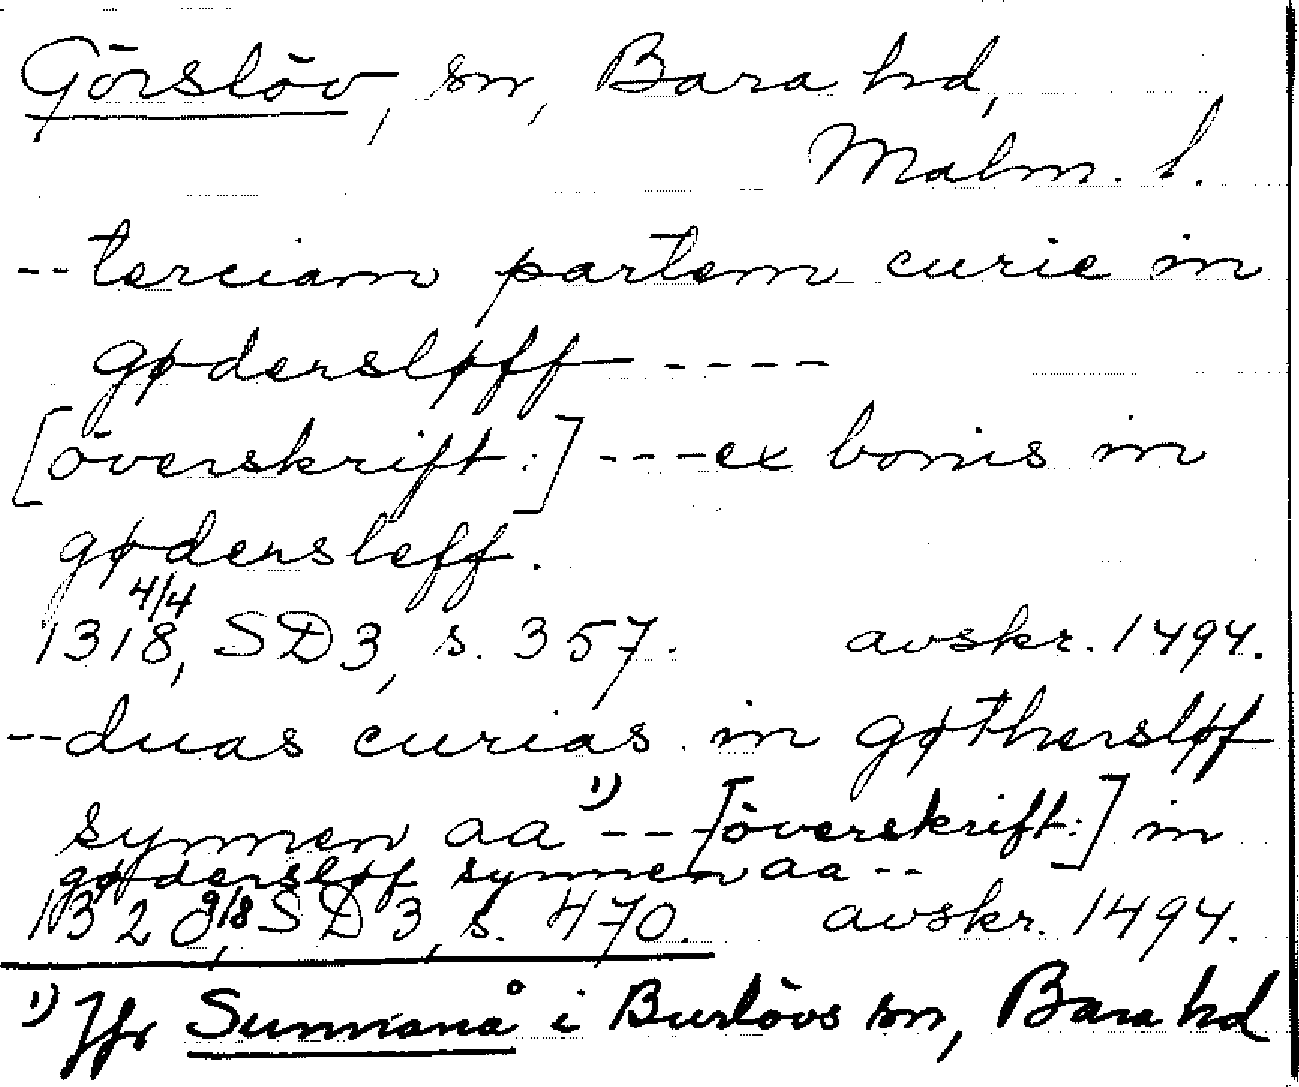 Görslöv, sn, Bara hd,
Malm. l.
-- terciam partem curie in
gødersløff ----
[överskrift:] --- ex bonis in
gødersleff.
4/4
1318, SD3, s. 357. avskr. 1494.
-- duas curias in gøthersløf
synnen aa 1) --- [överskrift:] in
gødersløf synnen aa --
1320 9/8, SD3, s. 470. avskr. 1494.
1) Jfr Sunnanå i Burlövs sn, Bara hd